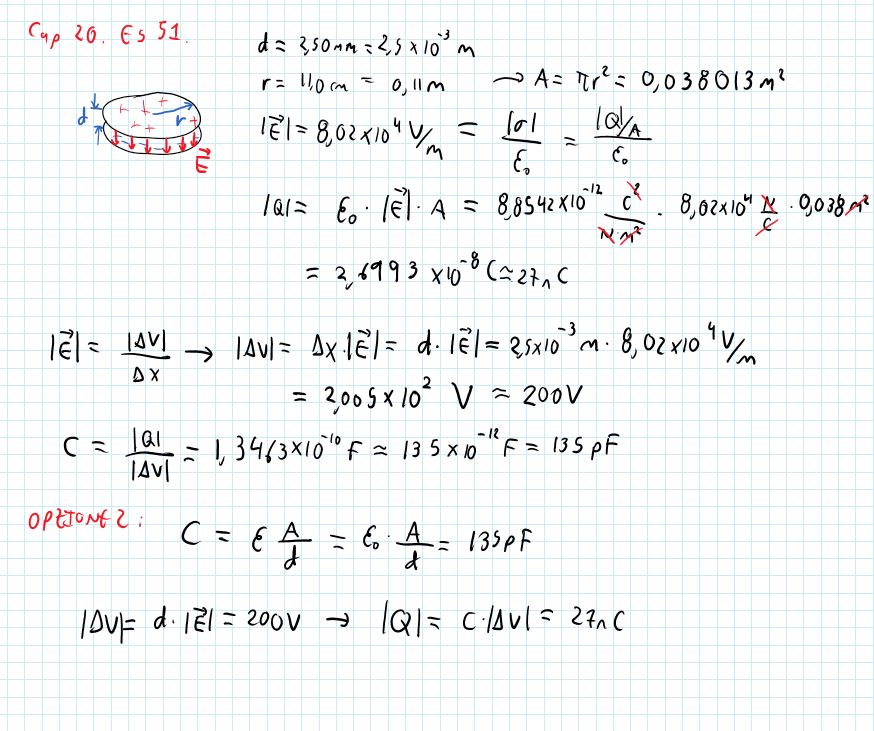 Cap 20. Es 51.
d = 2,50 mm = 2,5 × 10⁻³ m
r = 11,0 cm = 0,11 m → A = πr² = 0,038013 m²
d r E⃗
|E⃗| = 8,02 × 10⁴ V/m = |σ|/ε₀ = |Q|/A / ε₀
|Q| = ε₀ · |E⃗| · A = 8,8542 × 10⁻¹² C²/N·m² · 8,02 × 10⁴ N/C · 0,038 m²
= 2,6993 × 10⁻⁸ C ≃ 27nC
|E⃗| = |ΔV|/Δx → |ΔV| = Δx·|E⃗| = d·|E⃗| = 2,5×10⁻³ m · 8,02 × 10⁴ V/m
= 2,005 × 10² V ≃ 200V
C = |Q|/|ΔV| = 1,3463×10⁻¹⁰ F ≃ 135 × 10⁻¹² F = 135 pF
OPZIONE 2:
C = ε A/d = ε₀ · A/d = 135 pF
|ΔV| = d·|E⃗| = 200V → |Q| = C·|ΔV| = 27nC